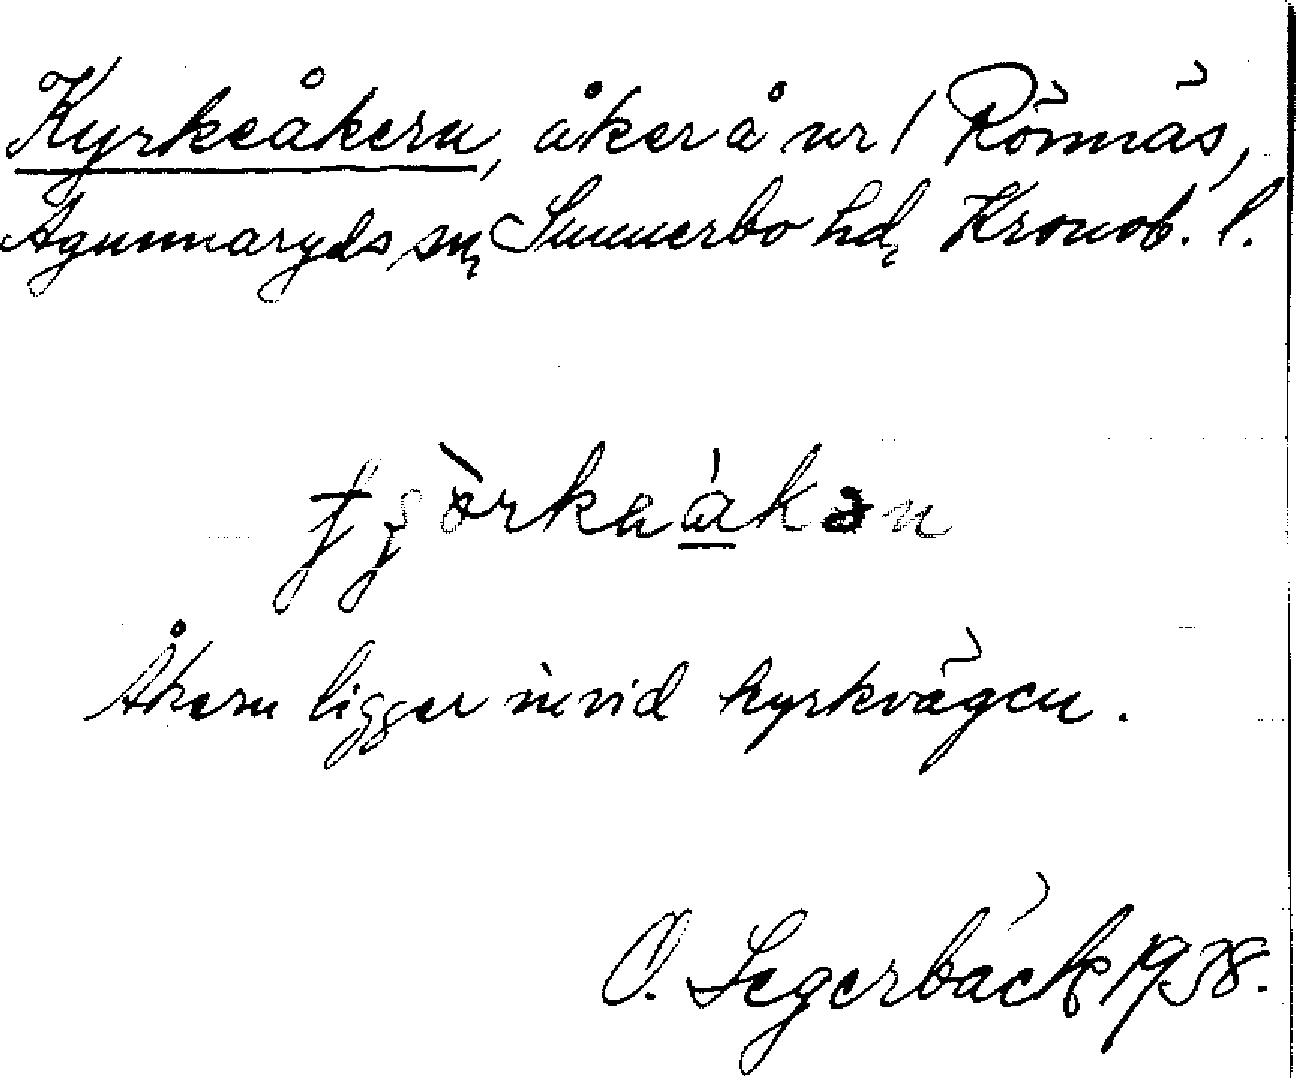 Kyrkeåkern, åker å nr 1 Rönnäs,
Agunnaryds sn, Sunnerbo hd, Kronob. l.
tjòrkaákən
Åkern ligger invid kyrkvägen.
O. Segerbäck 1938.